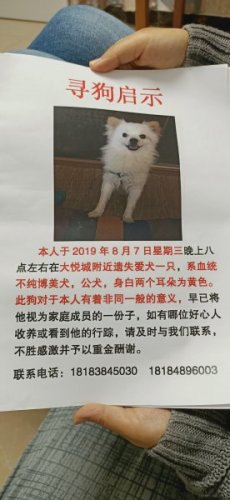 寻狗启示
本人于 2019 年 8 月 7 日星期三晚上八
点左右在大悦城附近遗失爱犬一只，系血统
不纯博美犬，公犬，身白两个耳朵为黄色。
此狗对于本人有着非同一般的意义，早已将
他视为家庭成员的一份子，如有哪位好心人
收养或看到他的行踪，请及时与我们联系，
不胜感激并予以重金酬谢。
联系电话：18183845030 18184896003